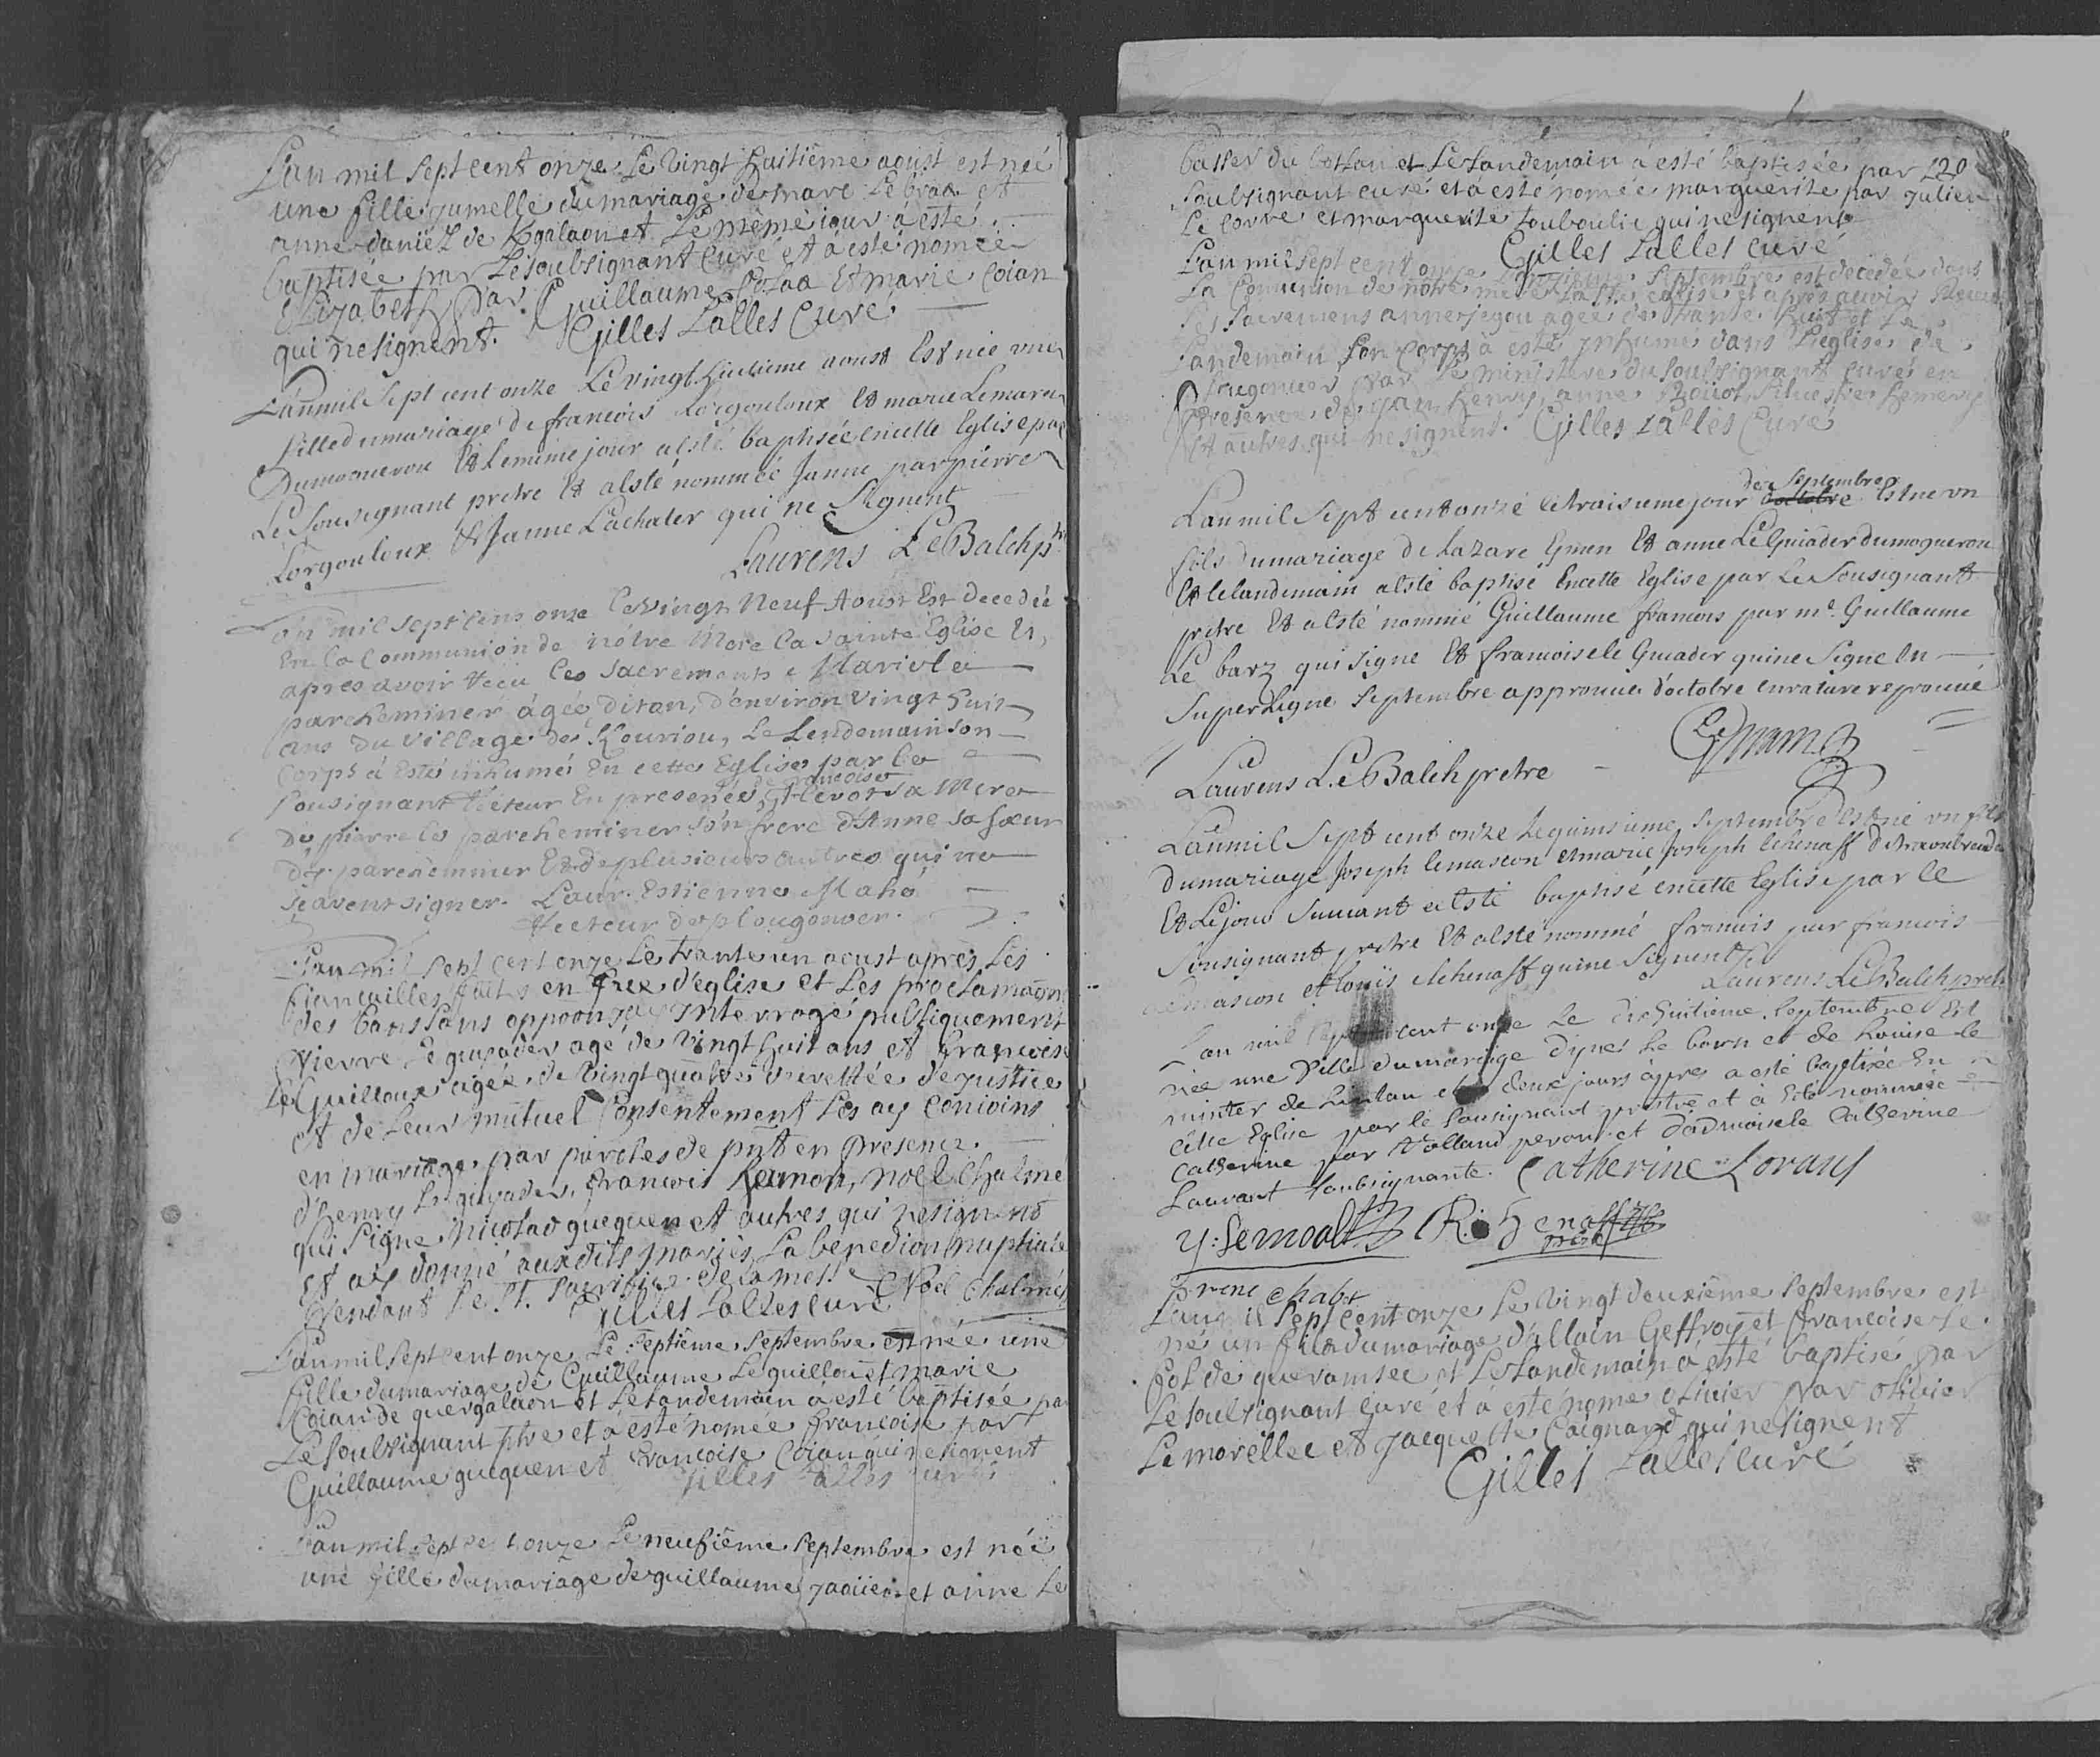 L'an mil sept cent onze Le vingt huitiême aoust est neé
une fille jumelle du mariage de marc Le bras et
anne daniel de Kgalaon et Le même iour à esté
baptisée par Le soubsignant Curé et à esté nomée
Elizabeth Par Guillaume Cotaa Et marie Coian
qui ne signent. Gilles Lalles Curé
Lan mil Sept cent onze Le vingt huitieme aoust Est née une
fille du mariage de francois Lorgouloux Et marie Lemaree
Dumogueroux Et le mime jour a esté baptisée en cette Eglise par
Le Sousignant pretre Et a lsté nommée Janne par pierre
Lorgouloux Et Janne Lachater qui ne Signent
Laurens LeBalch ptre
L'an mil sept cens onze Le vingt Neuf Aoust Est Decedée
En la Communion de nôtre Mere la Sainte Eglise Et,
apres avoir reçu les sacrements Marie le
parcheminer âgée ditan, d'environ vingt huit
ans du village de Kouriou, Le Lendemain son
Corps à Esté inhumé En cette Eglise par le
francoise
sousignant Recteur En presence, Thevot sa Mere
De pierre le parcheminer son frere d'Anne sa sœur
Le parcheminer Et de plusieurs autres qui ne
sçavent signer. Laur. Estienne Mahó
Recteur de plougonver.
L'an mil sept cent onze Le trante un aoust après Les
fiancailles faits en face d'église et Les proclamaons
des bans sans oppoon j'ay Interrogé publiquement
Pierre Le guyader agé de Vingt huit ans et francoise
Le Guilloux agée de Vingt quatre decrettée de justice
et de Leur mutuel Consentement Les ay Conioins
en mariage par paroles de pnt en Presence
d'henry Le guyader, francois hamon, noel Chalmé
qui signe nicolas gueguen et autres qui ne signent
Et ay donné aux dits mariés La benediction nuptiale
Pendant Le St. Sacrifice de la messe Noel Chalmés
Gilles Lalles Curé
L'an mil sept cent onze Le septiême septembre est née une
fille du mariage de Guillaume Le guillou et marie
Coian de quergalaon et Le landemain à esté baptisée par
Le soubsignant ptre et à esté nomée francoise par
Guillaume gueguen et francoise Coian qui ne signent
Gilles Lalles Curé
L'an mil sept cent onze Le neufiême Septembre est née
une fille du mariage de guillaume jaouen et anne Le
120
baster du botlan et Le landemain à esté baptisée par
Soubsignant curé et à esté nomée marguerite par julien
Le Corre et marguerite Louboulic qui ne signent
Gilles Lalles Curé
L'an mil sept cent onze Septembre est decedée dans
La Comunion de notre mere La Ste eglise et apres avoir Receu
Les sacremens anne jegou agée de trante huit et Le
Landemain son Corps à esté inhumé dans L'eglise de
Plougonver Par Le ministere du soubsignant curé en
Presence de jan henry, anne
Et autres qui ne signent. Gilles Lalles Curé
de Septembre
Lan mil Sept cent onze le troisieme jour doctobre Est ne un
fils du mariage de Lazare Even Et anne Le Guiader dumogueron
Et le landemain a lsté baptisé En cette Eglise par Le Sousignant
pretre Et a lsté nommé Guillaume francois par mr. Guillaume
Le barz qui signe Et francoise le Guiader qui ne Signe En
Super Ligne Septembre approuvé d'octobre en rature reprouvé
Laurens LeBalch pretre
Lan mil Sept cent onze Le quinsieme Septembre Est né un fils
du mariage Joseph lemascon et marie Joseph lehenaff
Et Le jour Suivant a lsté baptisé en cette Eglise par le
Sousignant pretre Et a lsté nommé francois par francois
Lemascon et Louïs lehenaff qui ne Signent
Laurens LeBalch pretre
L'an mil sept cent onze Le dixhuitieme septembre Est
née une fille du mariage dyves Le born et de Louise le
minter de et deux jours apres a esté baptisée En
cette Eglise par le sousignant prestre et à Esté nommée
Catherine par Rolland peron et dadmoisele Catherine
Lauvant soubsignante. Catherine Lorans
Y: Lemoal R. henaff
prêtre
L'an mil sept cent onze Le Vingt deuxiême septembre est
né un fils du mariage d'allain Geffroy et francoise Le
fol de et Le landemain à esté baptisé par
Le soubsignant Curé et à esté nomé olivier Par olivier
Le morellec et jacquette Coignard qui ne signent
Gilles Lalles Curé